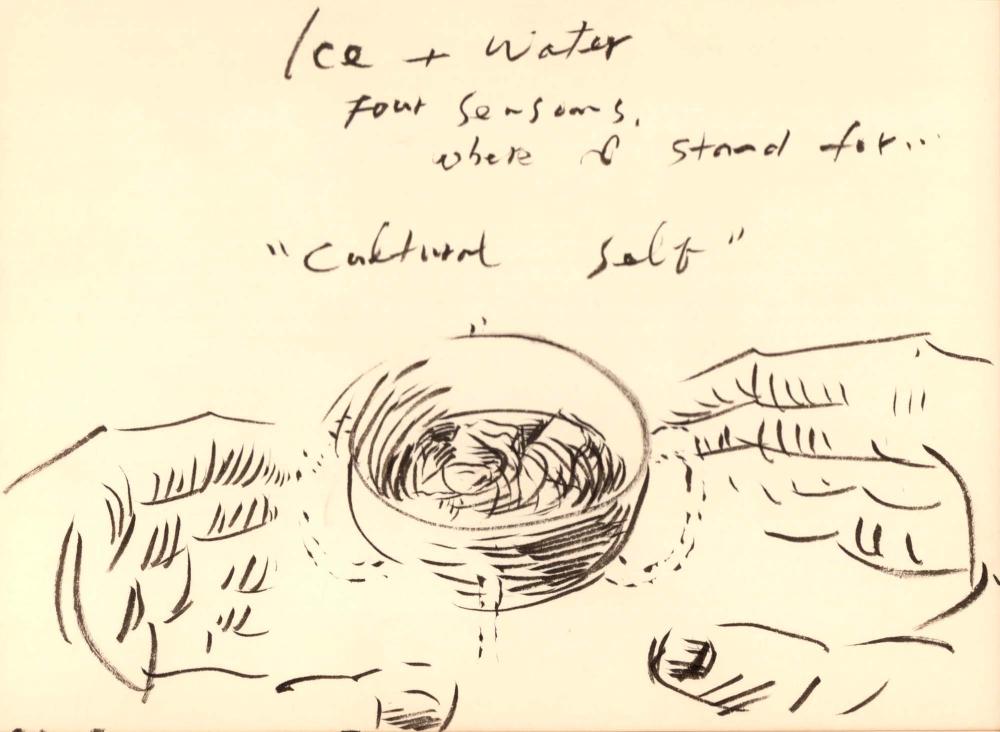 Ice + Water
Four Seasons,
where I stand for...
"Cultural Self"